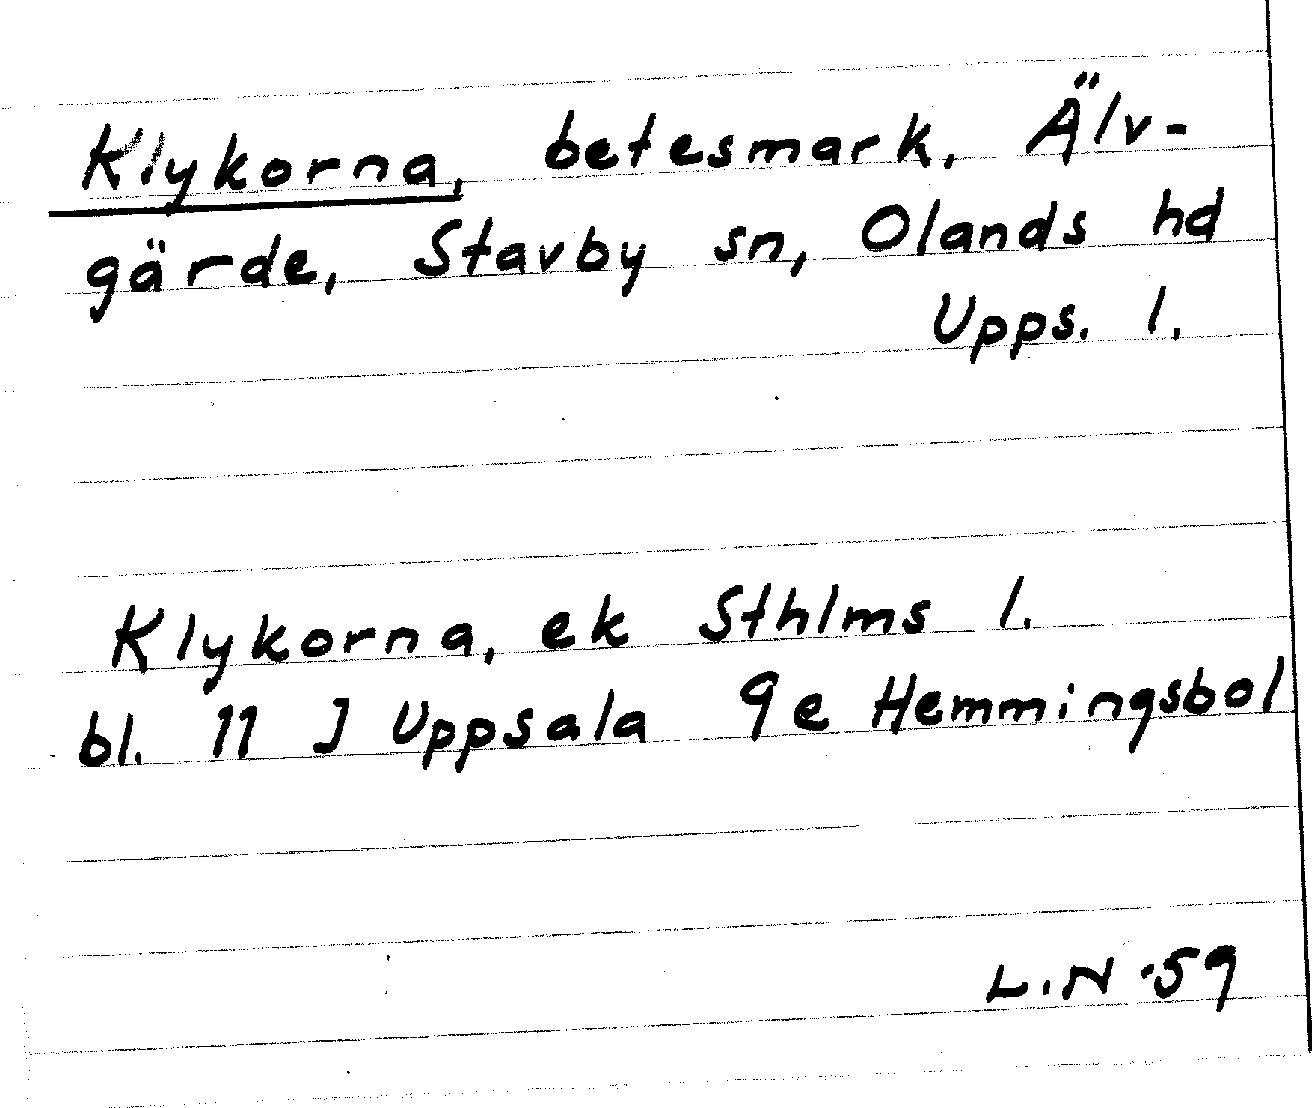 Klykorna, betesmark, Älv-
gärde, Stavby sn, Olands hd
Upps. l.
Klykorna, ek Sthlms l.
bl. 11 J Uppsala 9e Hemmingsbol
L.N -59